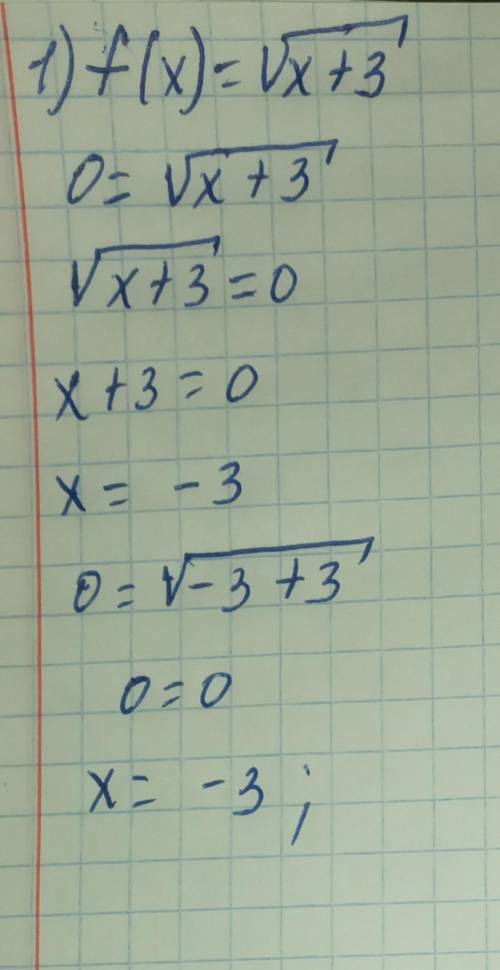 1) f(x) = √x+3
0 = √x+3
√x+3 = 0
x+3 = 0
x = -3
0 = √-3+3
0 = 0
x = -3;